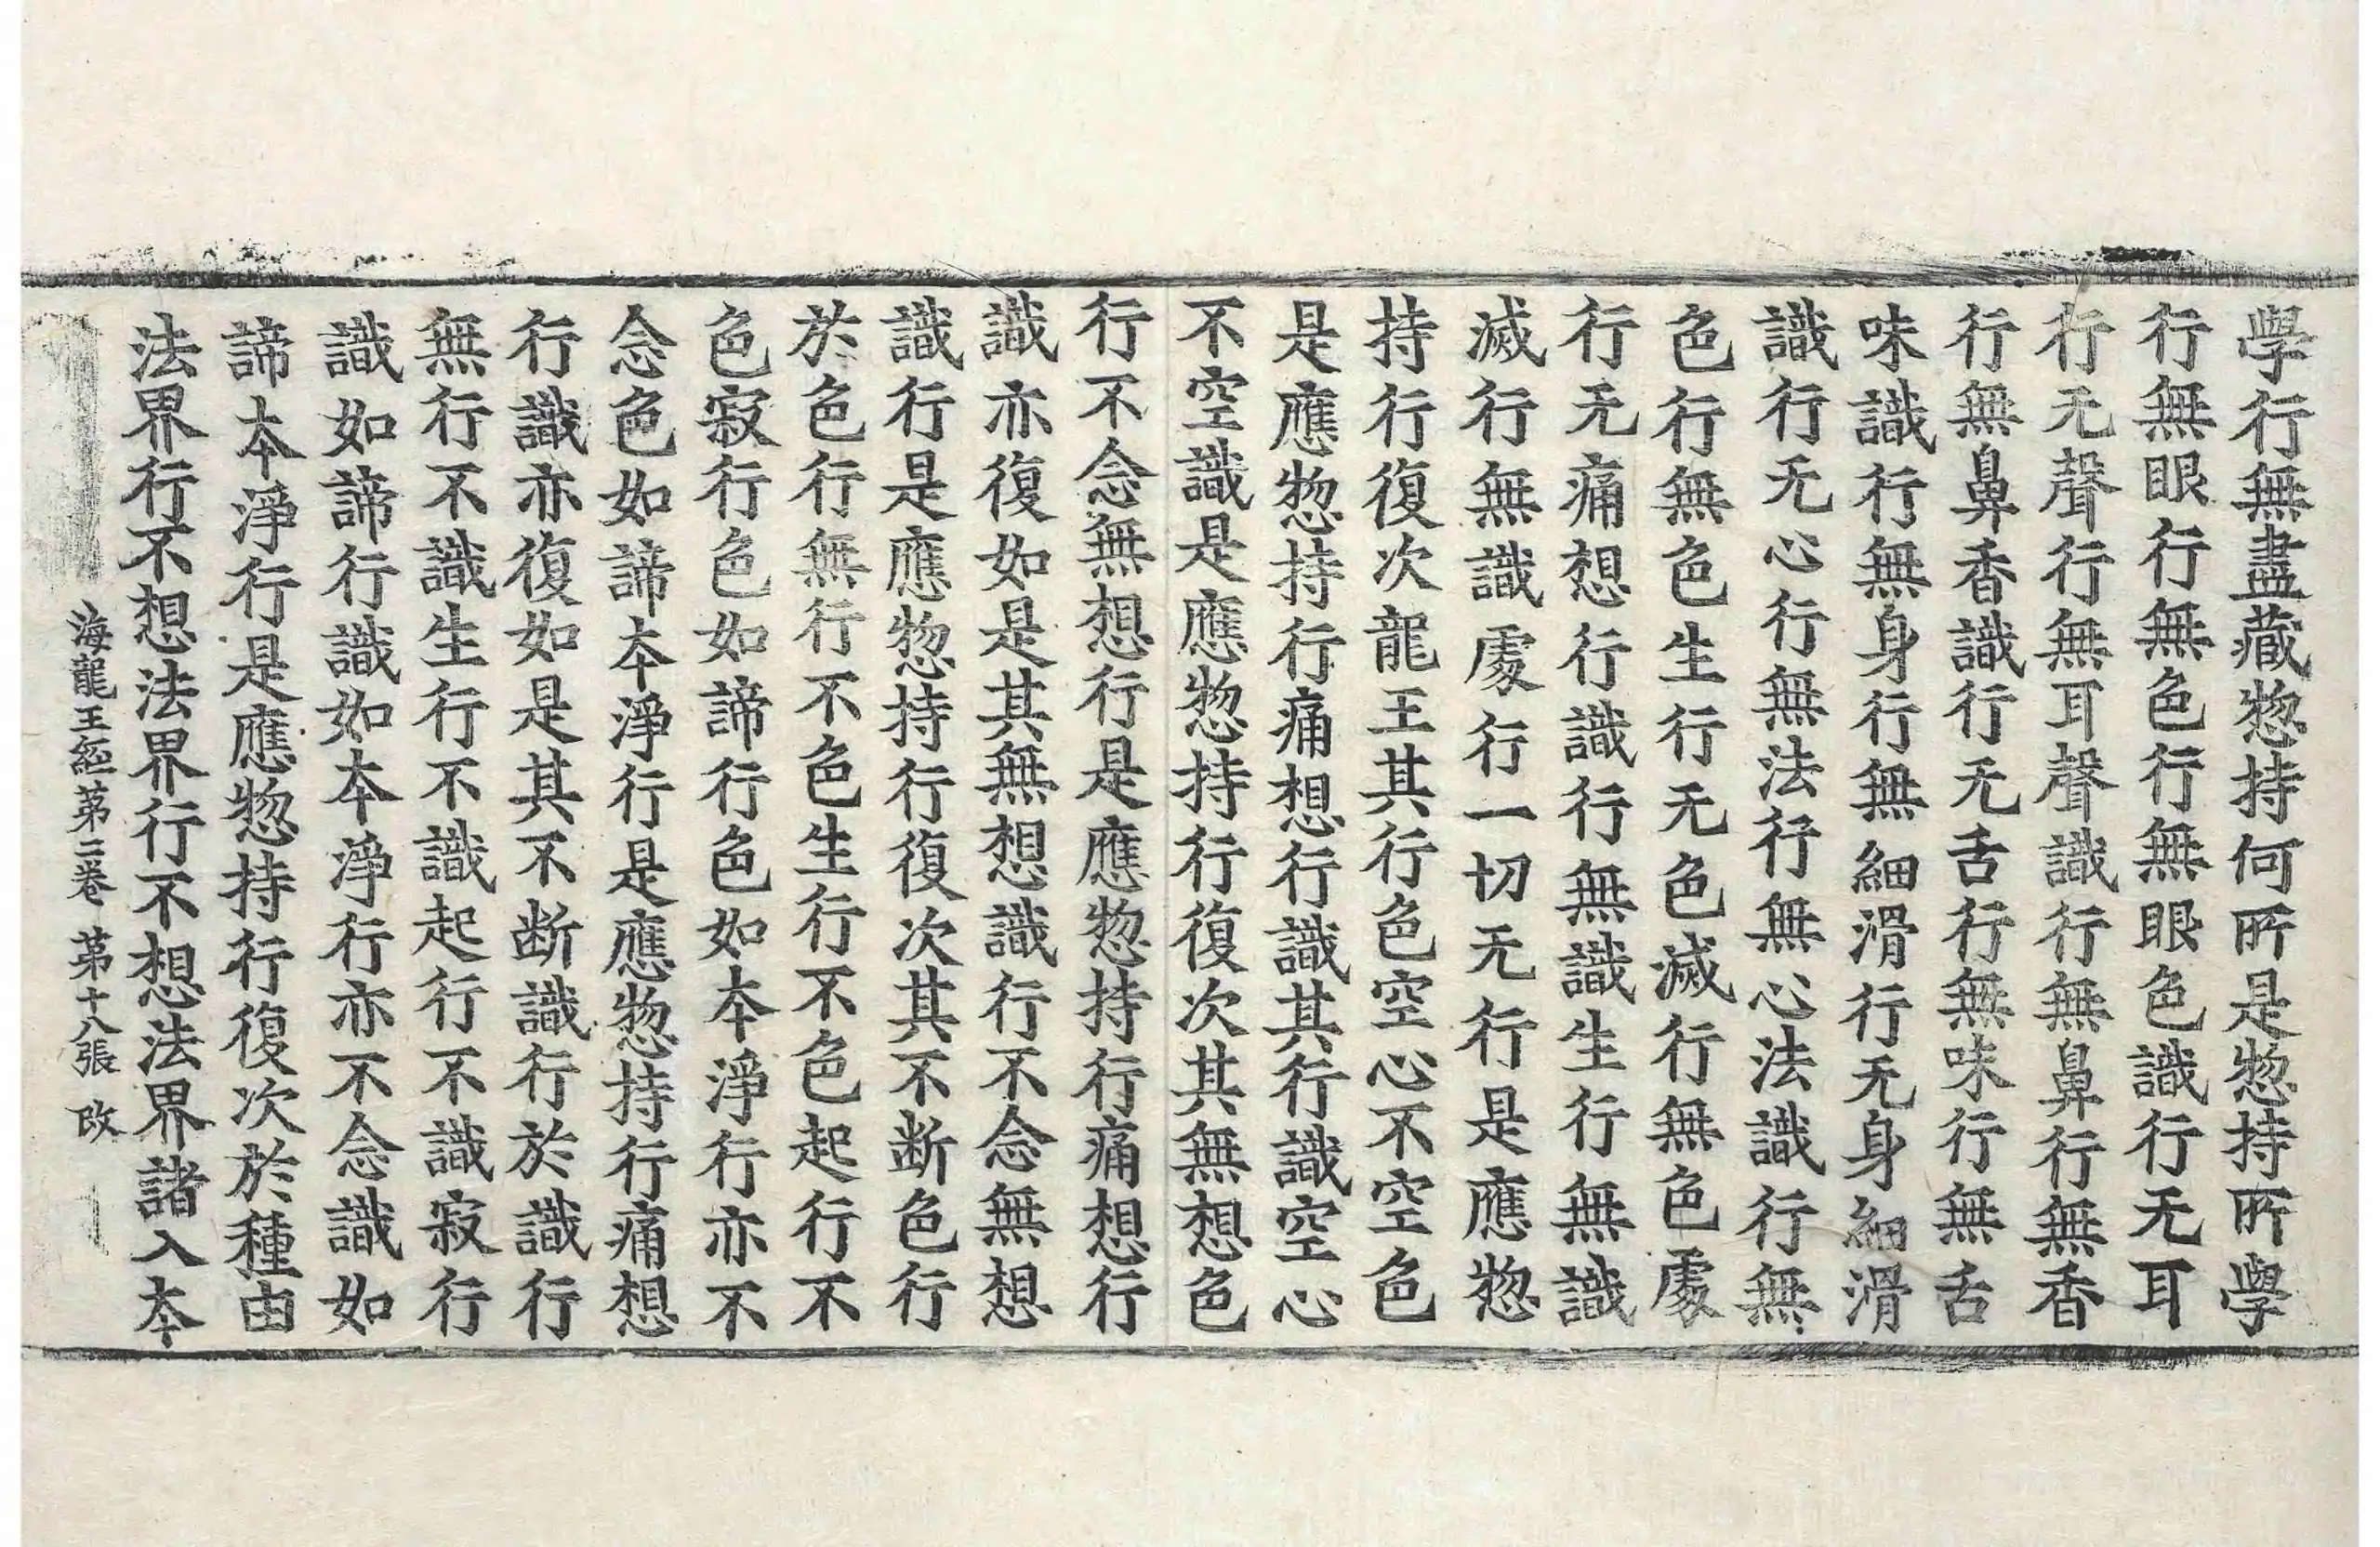 學行無盡藏惣持何所是惣持所學
行無眼行無色行無眼色識行无耳
行无聲行無耳聲識行無鼻行無香
行無鼻香識行无舌行無味行無舌
味識行無身行無細滑行无身細滑
識行无心行無法行無心法識行無
色行無色生行无色滅行無色處
行无痛想行識行無識生行無識
滅行無識處行一切无行是應惣
持行復次龍王其行色空心不空色
是應惣持行痛想行識其行識空心
不空識是應惣持行復次其無想色
行不念無想行是應惣持行痛想行
識亦復如是其無想識行不念無想
識行是應惣持行復次其不断色行
於色行無行不色生行不色起行不
色寂行色如諦行色如夲淨行亦不
念色如諦夲淨行是應惣持行痛想
行識亦復如是其不断識行於識行
無行不識生行不識起行不識寂行
識如諦行識如夲淨行亦不念識如
諦夲淨行是應惣持行復次於種由
法界行不想法界行不想法界諸入夲
海龍王経苐二卷 苐十八張 改